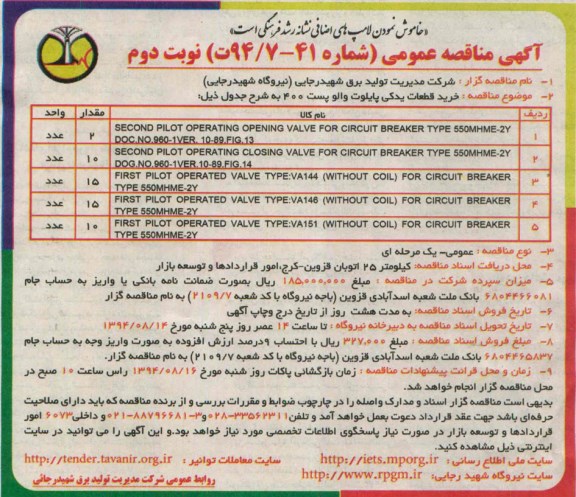 «خاموش نمودن لامپ های اضافی نشانه رشد فرهنگی است»
آگهی مناقصه عمومی (شماره ۴۱-۹۴/۷ت) نوبت دوم
۱- نام مناقصه گزار : شرکت مدیریت تولید برق شهیدرجایی (نیروگاه شهیدرجایی)
۲- موضوع مناقصه : خرید قطعات یدکی پایلوت والو پست ۴۰۰ به شرح جدول ذیل:
ردیف نام کالا مقدار واحد
۱ SECOND PILOT OPERATING OPENING VALVE FOR CIRCUIT BREAKER TYPE 550MHME-2Y ۲ عدد
DOC.NO.960-1VER. 10-89.FIG.13
۲ SECOND PILOT OPERATING CLOSING VALVE FOR CIRCUIT BREAKER TYPE 550MHME-2Y ۱۰ عدد
DOG.NO.960-1VER. 10-89.FIG.14
۳ FIRST PILOT OPERATED VALVE TYPE:VA144 (WITHOUT COIL) FOR CIRCUIT BREAKER ۱۵ عدد
TYPE 550MHME-2Y
۴ FIRST PILOT OPERATED VALVE TYPE:VA146 (WITHOUT COIL) FOR CIRCUIT BREAKER ۱۵ عدد
TYPE 550MHME-2Y
۵ FIRST PILOT OPERATED VALVE TYPE:VA151 (WITHOUT COIL) FOR CIRCUIT BREAKER ۱۰ عدد
TYPE 550MHME-2Y
۳- نوع مناقصه : عمومی- یک مرحله ای
۴- محل دریافت اسناد مناقصه: کیلومتر ۲۵ اتوبان قزوین-کرج،امور قراردادها و توسعه بازار
۵- میزان سپرده شرکت در مناقصه : مبلغ ۱۸۵,۰۰۰,۰۰۰ ریال بصورت ضمانت نامه بانکی یا واریز به حساب جام
۶۸۰۴۴۶۶۰۸۱ بانک ملت شعبه اسدآبادی قزوین (باجه نیروگاه با کد شعبه ۲۱۰۹/۷) به نام مناقصه گزار
۶- تاریخ فروش اسناد مناقصه: به مدت هشت روز از تاریخ درج وچاپ آگهی
۷- تاریخ تحویل اسناد مناقصه به دبیرخانه نیروگاه : تا ساعت ۱۴ عصر روز پنج شنبه مورخ ۱۳۹۴/۰۸/۱۴
۸- مبلغ فروش اسناد مناقصه : مبلغ ۳۲۷,۰۰۰ ریال با احتساب ۹درصد ارزش افزوده به صورت واریز وجه به حساب جام
۶۸۰۴۴۶۵۸۳۷ بانک ملت شعبه اسدآبادی قزوین (باجه نیروگاه با کد شعبه ۲۱۰۹/۷) به نام مناقصه گزار.
۹- زمان و محل قرائت پیشنهادات مناقصه : زمان بازگشائی پاکات روز شنبه مورخ ۱۳۹۴/۰۸/۱۶ راس ساعت ۱۰ صبح در
محل مناقصه گزار انجام خواهد شد.
بدیهی است مناقصه گزار اسناد و مدارک واصله را در چارچوب ضوابط و مقررات بررسی و از برنده مناقصه که باید دارای صلاحیت
حرفه‌ای باشد جهت عقد قرارداد دعوت بعمل خواهد آمد و تلفن ۰۲۸-۳۳۵۶۲۳۱۱و۳-۰۲۱-۸۸۷۹۶۶۸۱ و داخلی ۶۰۷۳ امور
قراردادها و توسعه بازار در صورت نیاز پاسخگوی اطلاعات تخصصی مورد نیاز خواهد بود.و این آگهی را می توانید در سایت
اینترنتی ذیل مشاهده کنید.
سایت ملی اطلاع رسانی : http://iets.mporg.ir سایت معاملات توانیر : http://tender.tavanir.org.ir
سایت نیروگاه شهید رجایی: http://www.rpgm.ir روابط عمومی شرکت مدیریت تولید برق شهیدرجائی